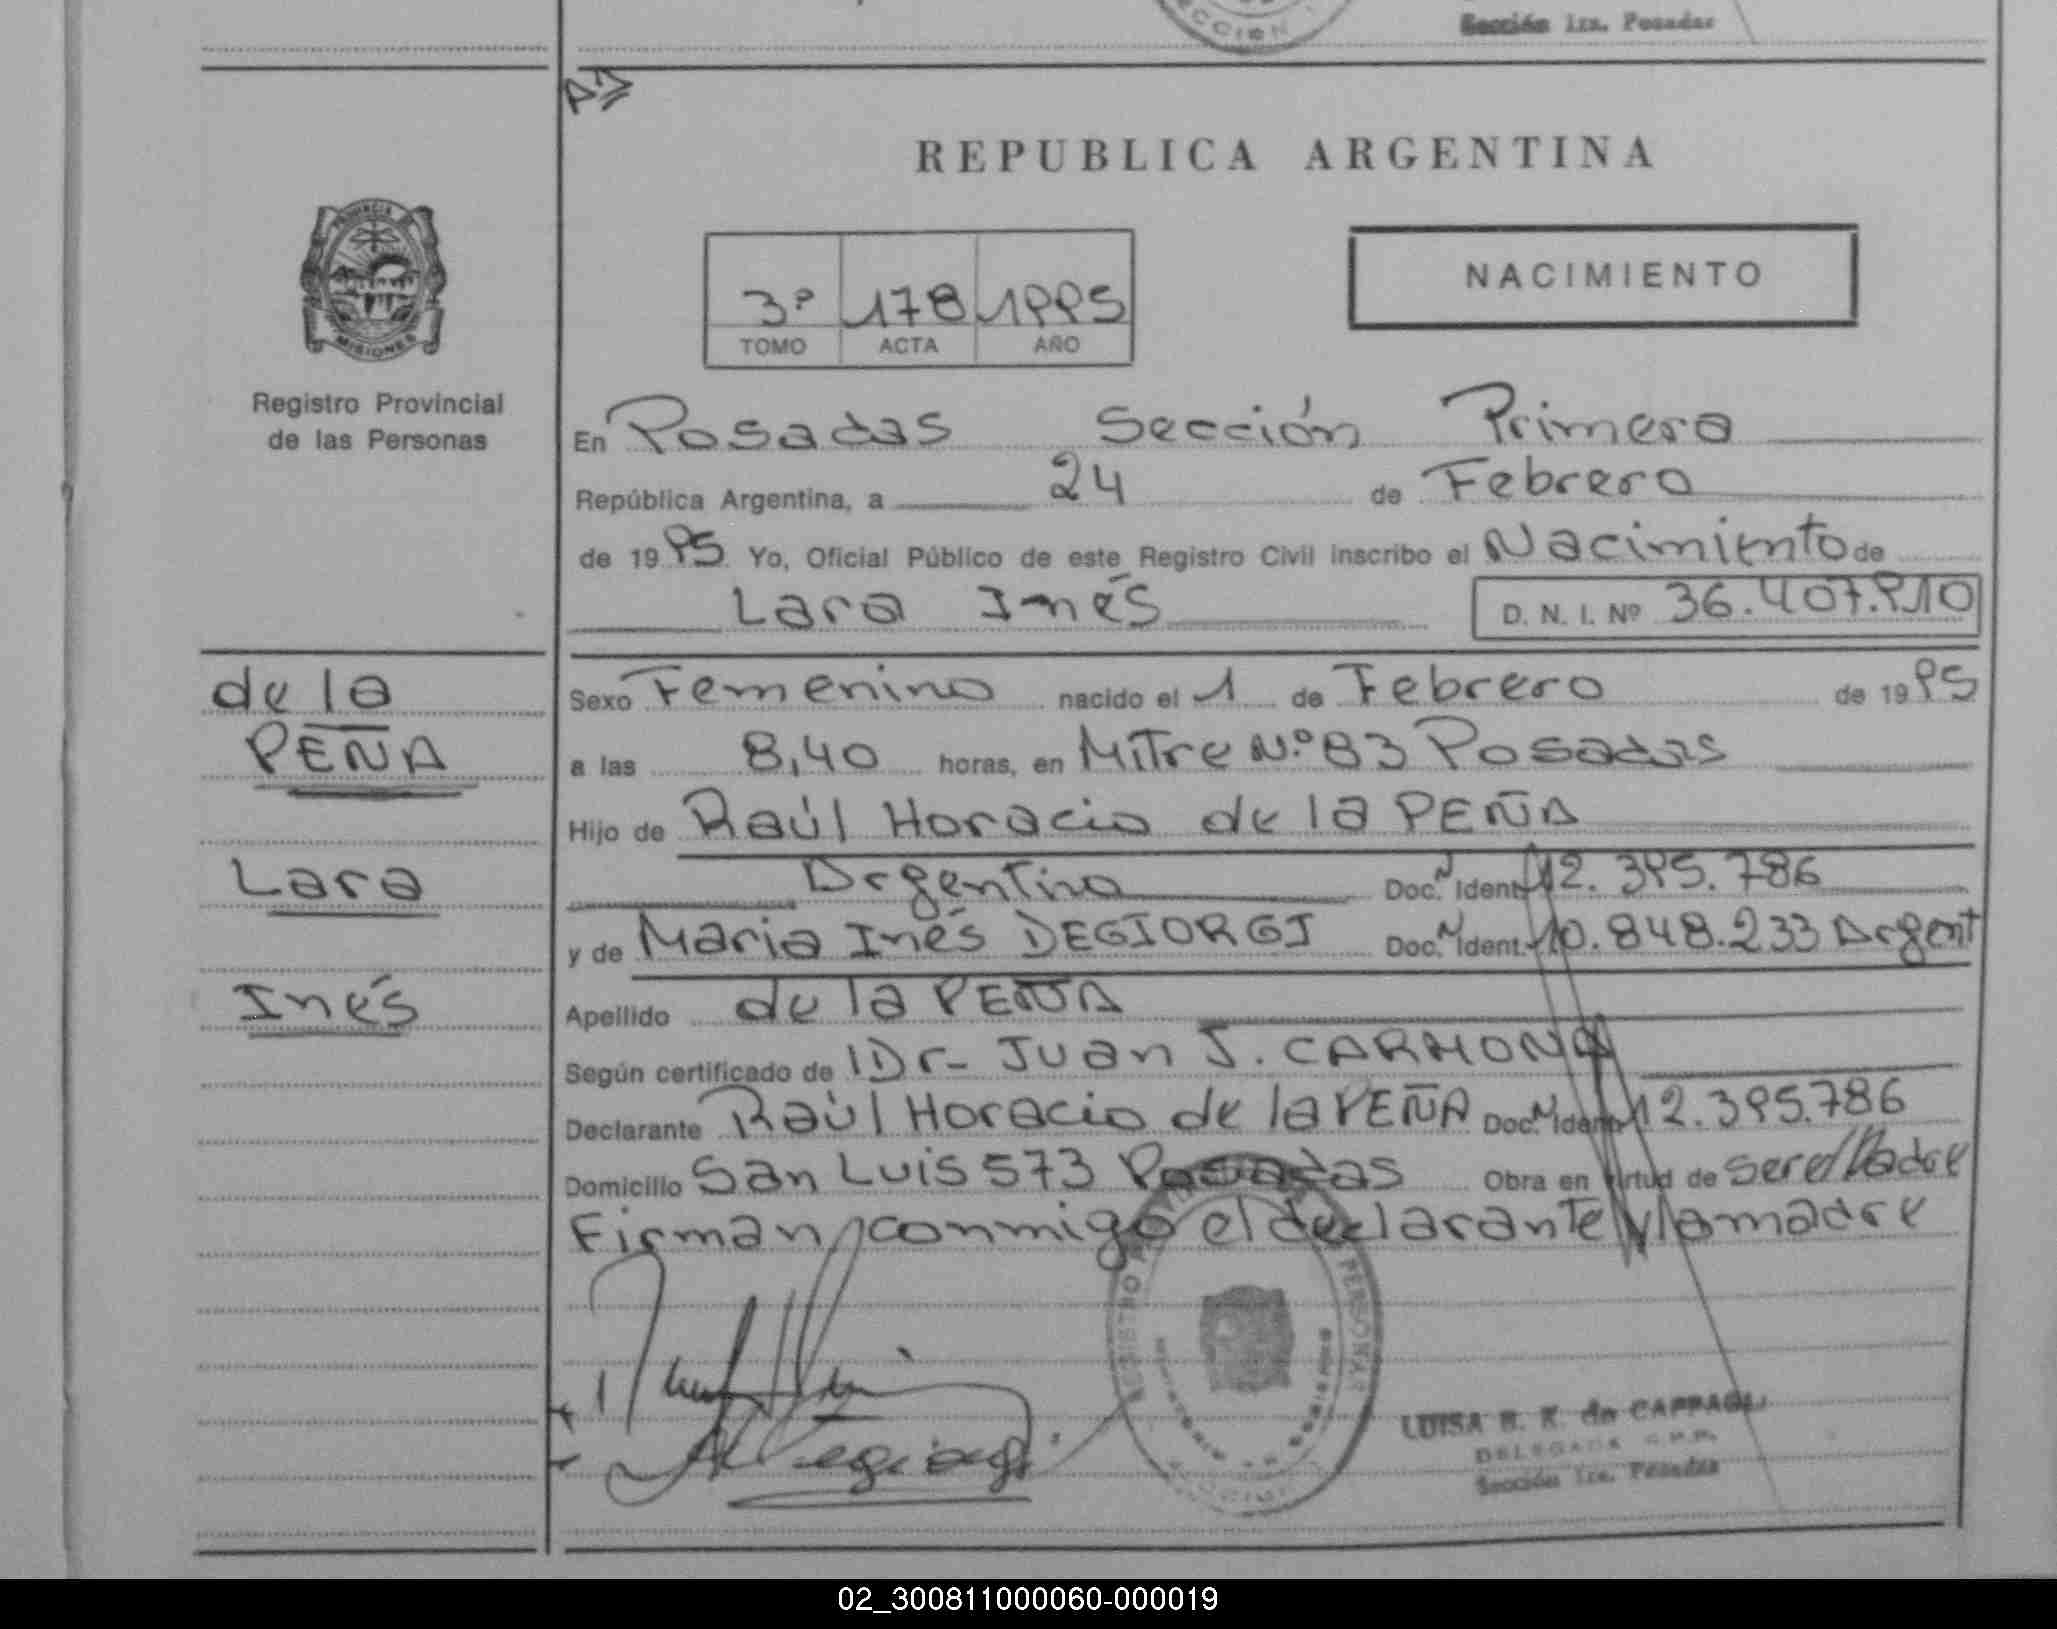 CCION
Sección 1ra. Posadas
REPUBLICA ARGENTINA
PROVINCIA DE
MISIONES
Registro Provincial
de las Personas
3º 178 1995
TOMO ACTA AÑO
NACIMIENTO
En Posadas Sección Primera
República Argentina, a 24 de Febrero
de 1995 Yo, Oficial Público de este Registro Civil inscribo el Nacimiento de
Lara Inés D. N. I. Nº 36.407.910
de la
PEÑA
Lara
Inés
Sexo Femenino nacido el 1 de Febrero de 1995
a las 8,40 horas, en Mitre N.º 83 Posadas
Hijo de Raúl Horacio de la PEÑA
Argentino Doc. N Ident. 12.395.786
y de Maria Inés DEGIORGI Doc. N Ident. 10.848.233 Argent
Apellido de la PEÑA
Según certificado de Dr- Juan J. CARMONA
Declarante Raúl Horacio de la PEÑA Doc. N Ident. 12.395.786
Domicilio San Luis 573 Posadas Obra en virtud de ser el Padre
Firman conmigo el declarante y la madre
REGISTRO PERSONAS
LUISA B. K. de CAPPAGLI
DELEGADA
Sección 1ra. Posadas
02_300811000060-000019